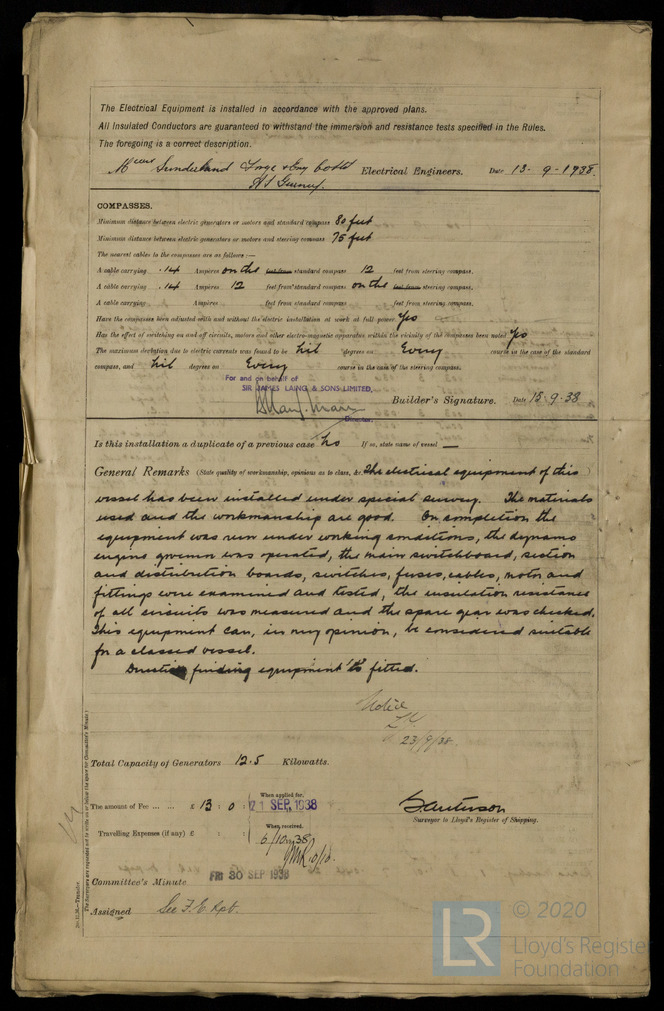 The Electrical Equipment is installed in accordance with the approved plans.
All Insulated Conductors are guaranteed to withstand the immersion and resistance tests specified in the Rules.
The foregoing is a correct description.
Messrs Sunderland Forge & Eng Co Ltd Electrical Engineers. Date 13-9-1938.
COMPASSES.
Minimum distance between electric generators or motors and standard compass 80 feet
Minimum distance between electric generators or motors and steering compass 75 feet
The nearest cables to the compasses are as follows:—
A cable carrying .14 Ampères on the feet from standard compass 12 feet from steering compass.
A cable carrying .14 Ampères 12 feet from standard compass on the feet from steering compass.
A cable carrying Ampères feet from standard compass feet from steering compass.
Have the compasses been adjusted with and without the electric installation at work at full power Yes
Has the effect of switching on and off circuits, motors and other electro-magnetic apparatus within the vicinity of the compasses been noted Yes
The maximum deviation due to electric currents was found to be Nil degrees on Every course in the case of the standard
compass, and Nil degrees on Every course in the case of the steering compass.
For and on behalf of
SIR JAMES LAING & SONS LIMITED,
Builder's Signature. Date 15.9.38
Director.
Is this installation a duplicate of a previous case No If so, state name of vessel —
General Remarks (State quality of workmanship, opinions as to class, &c. The electrical equipment of this
vessel has been installed under special survey. The materials
used and the workmanship are good. On completion the
equipment was run under working conditions, the dynamo
engine governor was operated, the main switchboard, section
and distribution boards, switches, fuses, cables, motor and
fittings were examined and tested, the insulation resistance
of all circuits was measured and the spare gear was checked.
This equipment can, in my opinion, be considered suitable
for a classed vessel.
Direction finding equipment is fitted.
Noted
23/9/38.
Total Capacity of Generators 12.5 Kilowatts.
The amount of Fee ... ... £ 13 : 0 : When applied for, 21 SEP. 1938
Surveyor to Lloyd's Register of Shipping.
Travelling Expenses (if any) £ : : When received, 6/10/38
Committee's Minute FRI 30 SEP 1938
Assigned See F.E. Rpt.
The Surveyors are requested not to write on or below the space for Committee's Minute.
© 2020
LR
Lloyd's Register
Foundation